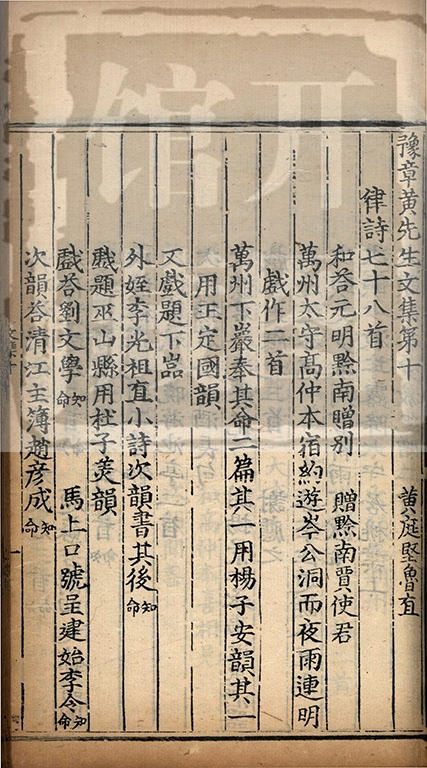 豫章黄先生文集第十
黄庭堅魯直
律詩七十八首
和荅元明黔南贈別　贈黔南賈使君
萬州太守髙仲本宿約遊岑公洞而夜雨連明
戲作二首
萬州下巖奉其命二篇其一用楊子安韻其一
用王定國韻
又戲題下巖
外姪李光祖直小詩次韻書其後知命
戲題巫山縣用杜子美韻
戲荅劉文學知命　馬上口號呈建始李令知命
次韻荅清江主簿趙彥成知命
一